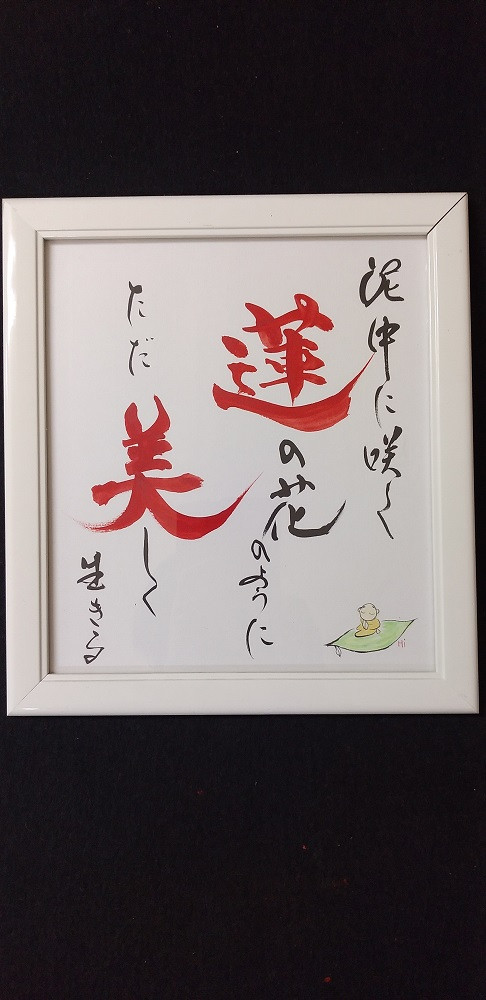 泥中に咲く
蓮の花のように
ただ美しく
生きる
Mi